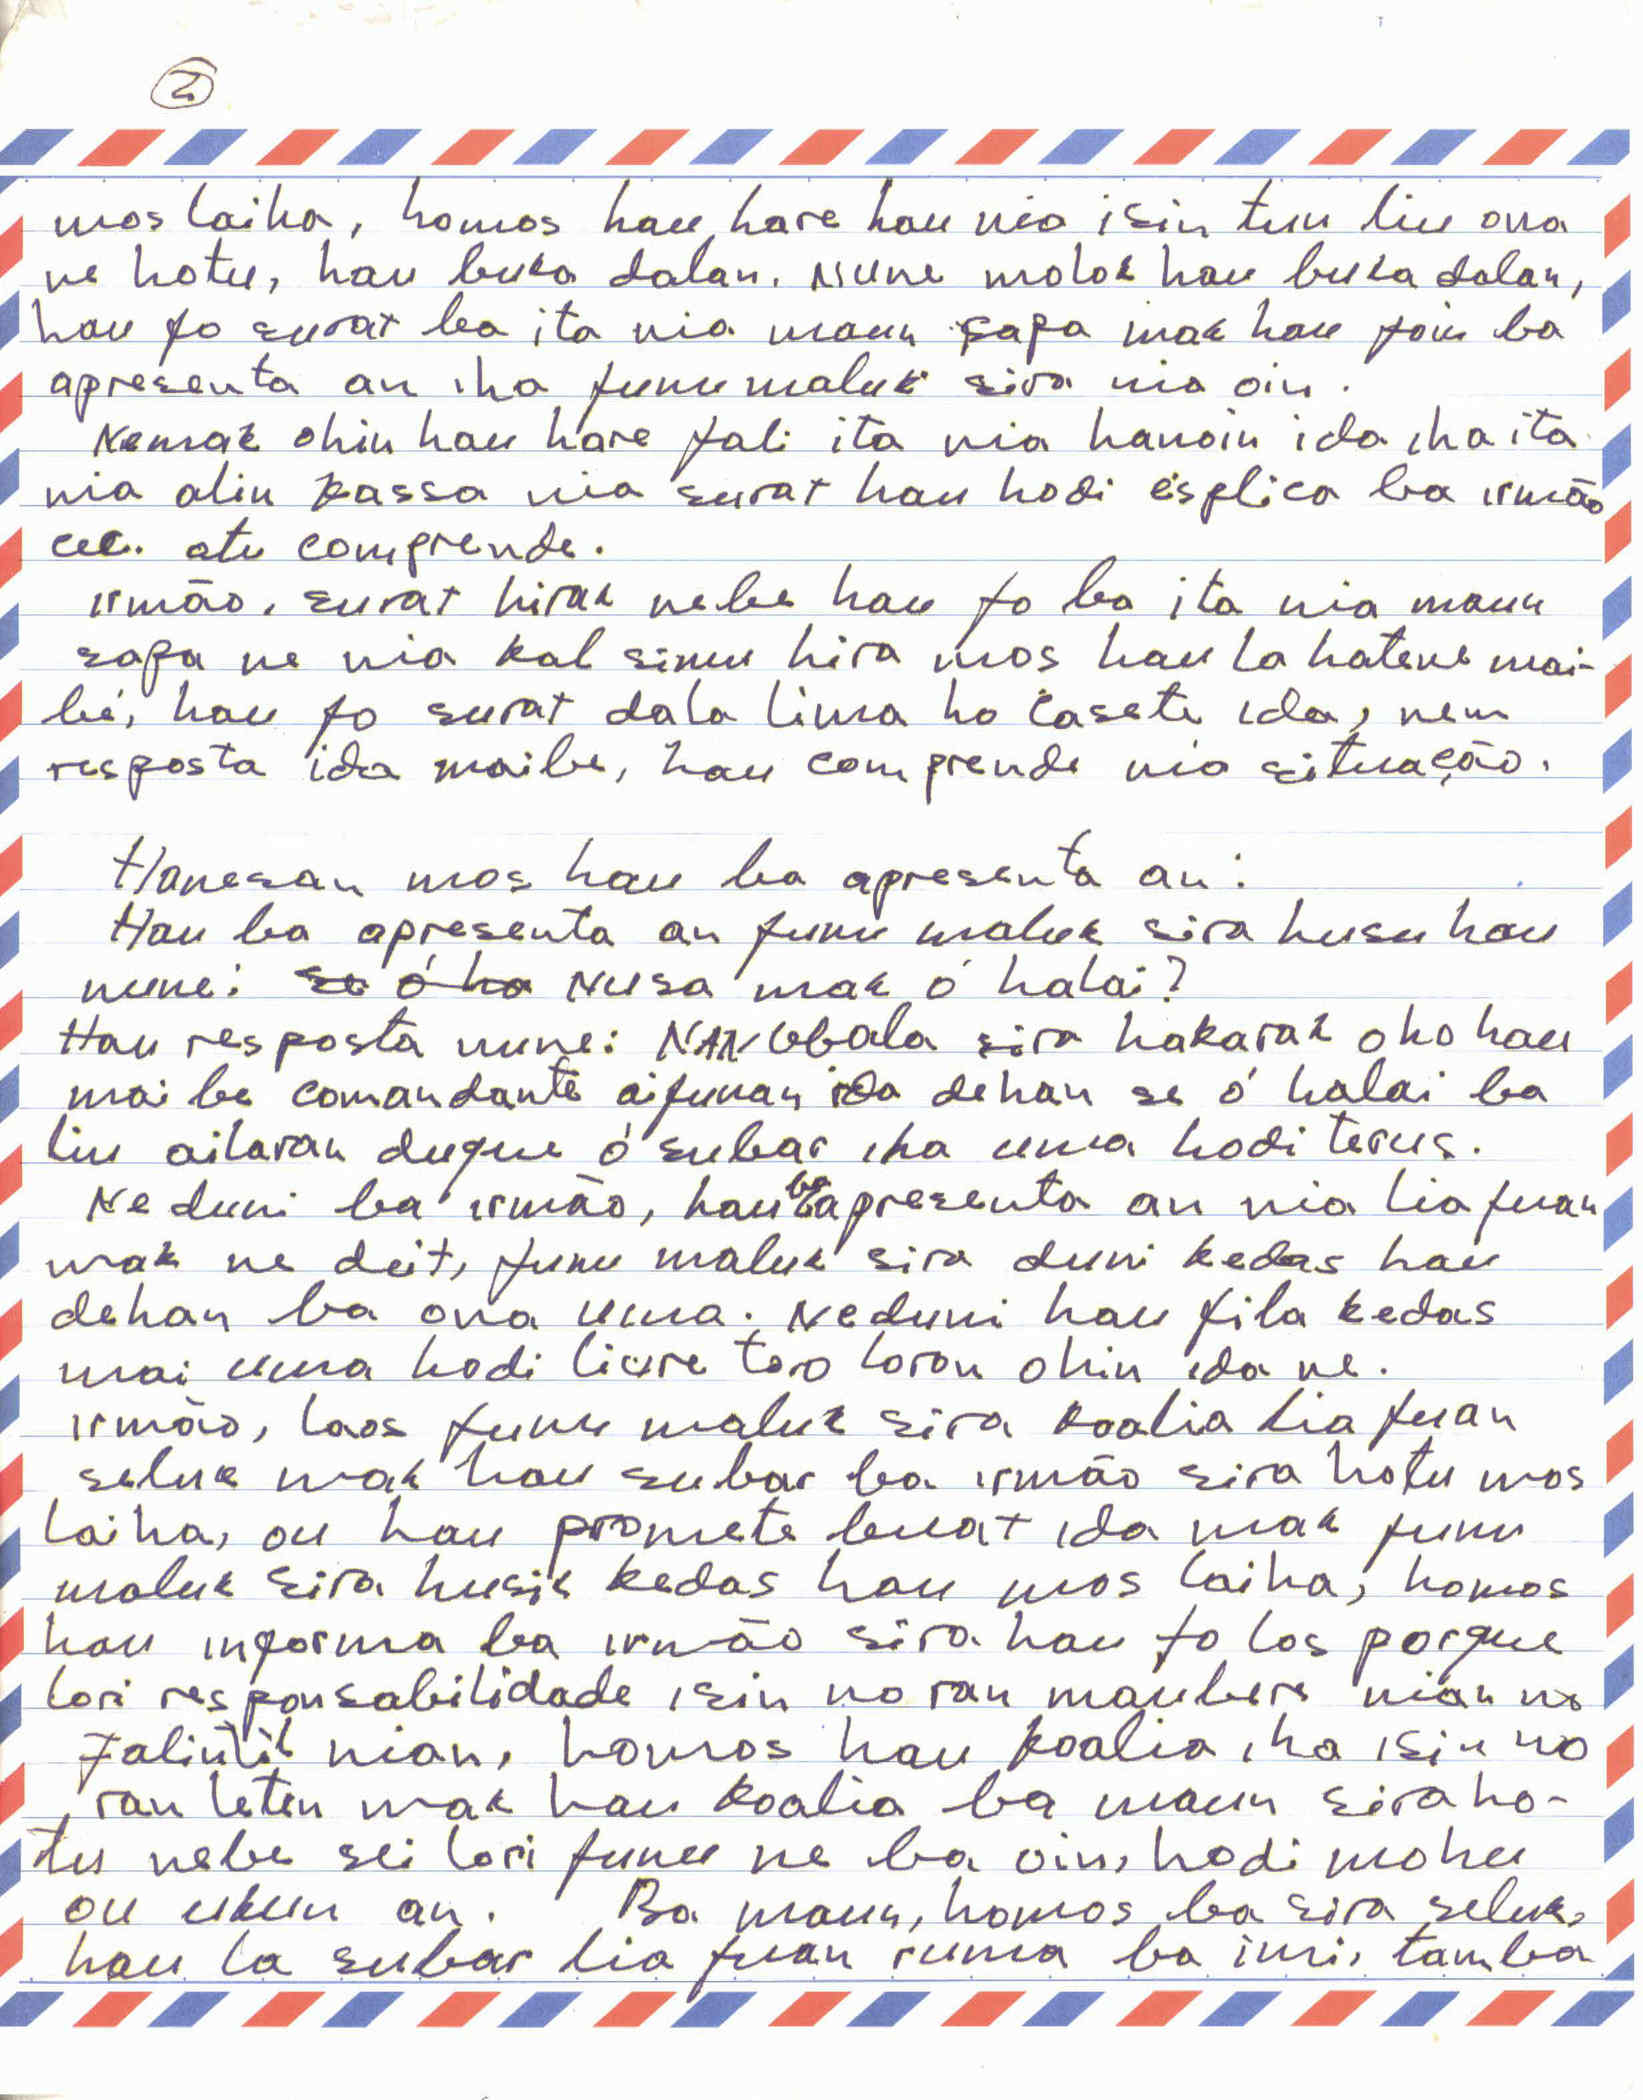 2
mos laiha, homos hau hare hau nia isin tun liu ona
ne hotu, hau buka dalan. Nune molok hau buka dalan,
hau fo surat ba ita nia maun sapa mak hau foin ba
apresenta an iha funu maluk sira nia oin.
Nemak ohin hau hare fali ita nia hanoin ida iha ita
nia alin Kassa nia surat hau hodi esplica ba irmão
atu comprende.
irmão, surat hirak nebe hau fo ba ita nia maun
sapa ne nia kal simu hira mos hau la hatene mai-
bé, hau fo surat dala lima ho casete ida, nem
resposta ida maibe, hau comprende nia situação.
Hanesan mos hau ba apresenta an:
Hau ba apresenta an funu maluk sira husu hau
nune: se ó ho Nusa mak ó halai?
Hau resposta nune: NANGGALA sira hakarak oho hau
mai be comandante aifunan ida dehan se ó halai ba
liu ailaran duque ó subar iha uma hodi terus.
Ne duni ba irmão, hau ba apresenta an nia lia fuan
mak ne deit, funu maluk sira duni kedas hau
dehan ba ona uma. Neduni hau fila kedas
mai uma hodi livre too loron ohin ida ne.
irmão, laos funu maluk sira koalia lia fuan
seluk mak hau subar ba irmão sira hotu mos
laiha, ou hau promete buat ida mak funu
maluk sira husik kedas hau mos laiha, homos
hau informa ba irmão sira hau fo los porque
lori responsabilidade isin no ran maubere nian no
Falintil nian, homos hau koalia iha isin no
ran leten mak hau koalia ba maun sira ho-
tu nebe sei lori funu ne ba oin, hodi mohu
ou ukun an. Ba maun, homos ba sira seluk,
hau la subar lia fuan ruma ba imi, tamba